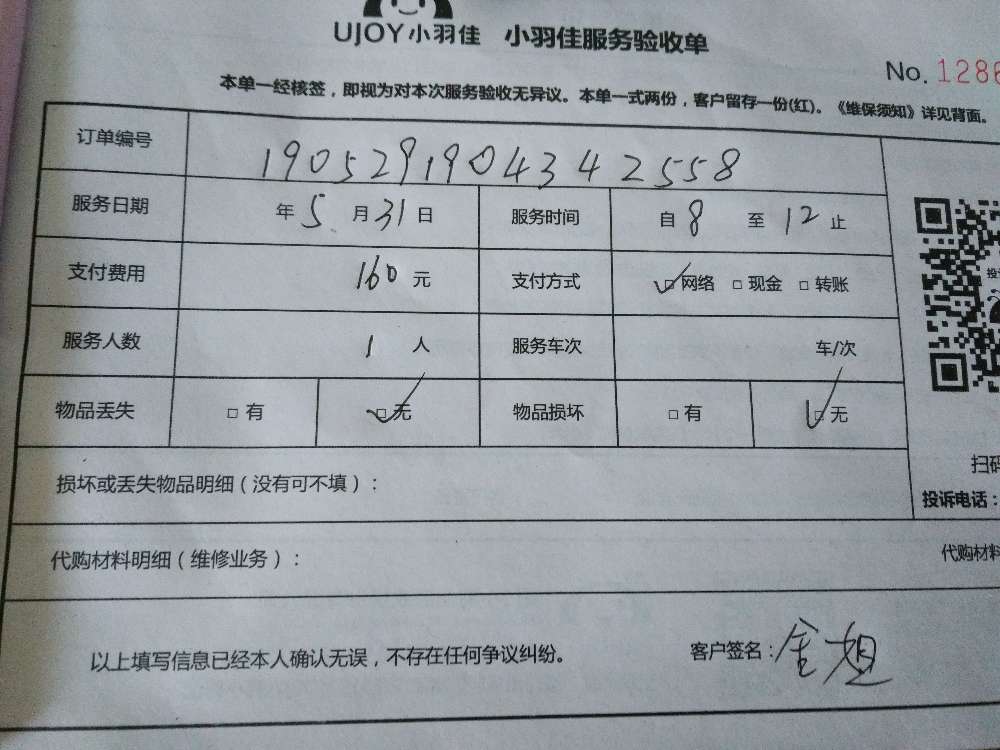 UJOY小羽佳 小羽佳服务验收单
No. 1286
本单一经核签，即视为对本次服务验收无异议。本单一式两份，客户留存一份(红)。《维保须知》详见背面。
订单编号 1905291904342558
服务日期 年 5 月 31 日 服务时间 自 8 至 12 止
支付费用 160 元 支付方式 ☑网络 □现金 □转账
服务人数 1 人 服务车次 车/次
物品丢失 □有 ☑无 物品损坏 □有 ☑无
损坏或丢失物品明细（没有可不填）：
扫码
投诉电话：
代购材料明细（维修业务）： 代购材料
以上填写信息已经本人确认无误，不存在任何争议纠纷。 客户签名：金姐